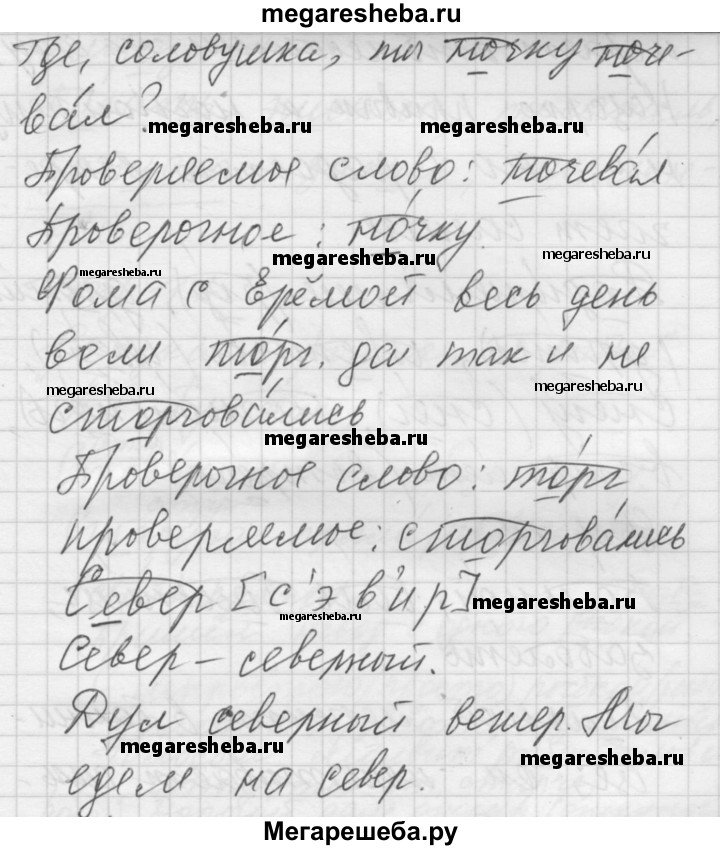 megaresheba.ru
Где, соловушка, ты ночку ноче-
ва́л?
megaresheba.ru megaresheba.ru
Проверяемое слово: ночева́л
Проверочное: но́чку
megaresheba.ru megaresheba.ru
megaresheba.ru
Фома с Ерёмой весь день
вели то́рг. да так и не
megaresheba.ru megaresheba.ru
сторгова́лись
megaresheba.ru
Проверочное слово: то́рг
проверяемое: сторгова́лись
Север [с'эв'ир]
megaresheba.ru megaresheba.ru
Север – северный.
Дул северный ветер. Мы
megaresheba.ru megaresheba.ru
едем на север.
Мегарешеба.ру